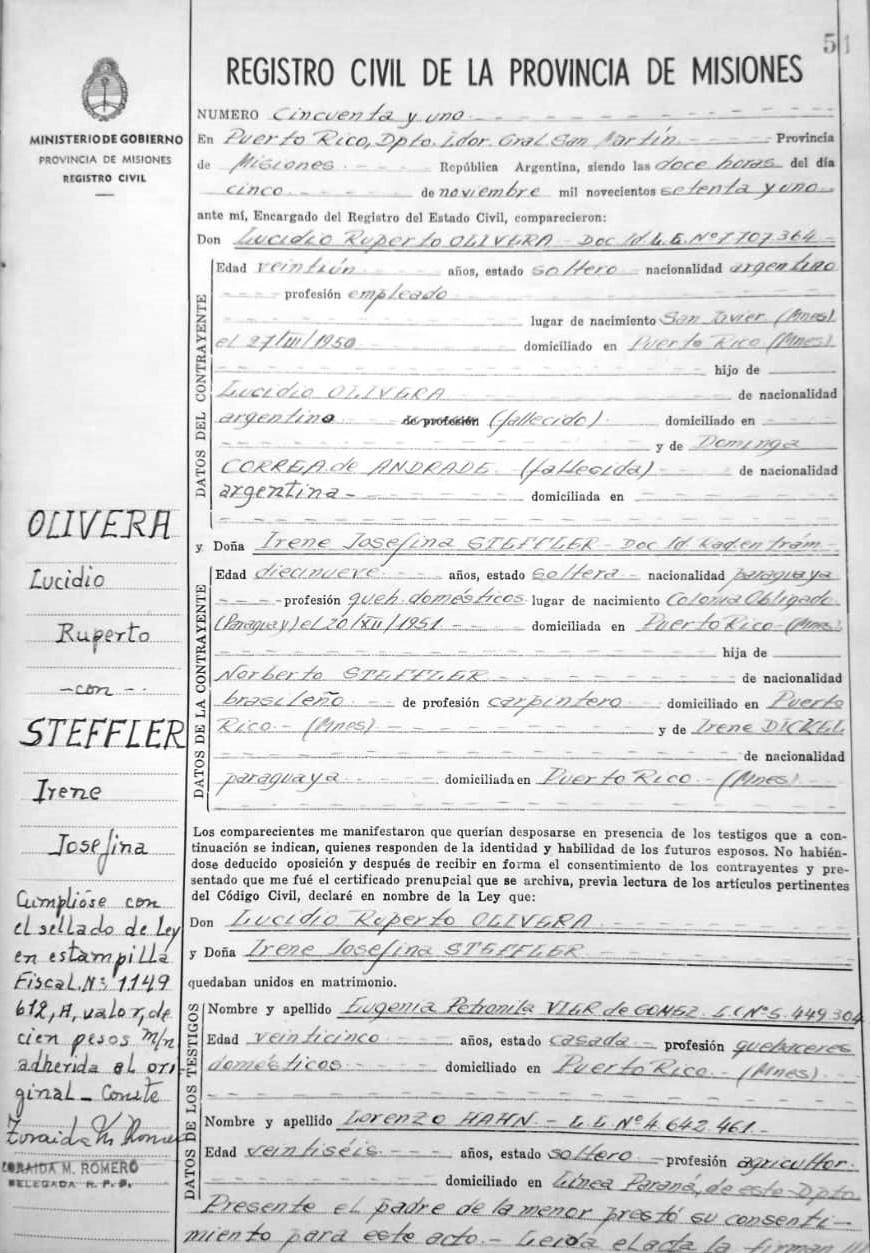 51
REGISTRO CIVIL DE LA PROVINCIA DE MISIONES
MINISTERIO DE GOBIERNO
PROVINCIA DE MISIONES
REGISTRO CIVIL
NUMERO Cincuenta y uno
En Puerto Rico, Dpto. Ldor. Gral San Martín Provincia
de Misiones República Argentina, siendo las doce horas del día
cinco de noviembre mil novecientos setenta y uno
ante mí, Encargado del Registro del Estado Civil, comparecieron:
Don Lucidio Ruperto OLIVERA - Doc Id. L.E. Nº 7.707.364 -
DATOS DEL CONTRAYENTE
Edad veintiún años, estado soltero nacionalidad argentino
profesión empleado
lugar de nacimiento San Javier (Mnes)
el 27/III/1950 domiciliado en Puerto Rico (Mnes)
hijo de
Lucidio OLIVERA de nacionalidad
argentino de profesión (fallecido) domiciliado en
y de Dominga
CORREA de ANDRADE (fallecida) de nacionalidad
argentina - domiciliada en
y Doña Irene Josefina STEFFLER - Doc Id. Rad. en trám -
DATOS DE LA CONTRAYENTE
Edad diecinueve años, estado soltera nacionalidad paraguaya
profesión queh. domésticos lugar de nacimiento Colonia Obligado
(Paraguay) el 20/XII/1951 domiciliada en Puerto Rico - (Mnes)
hija de
Norberto STEFFLER de nacionalidad
brasileño de profesión carpintero domiciliado en Puerto
Rico - (Mnes) y de Irene DICKEL
de nacionalidad
paraguaya domiciliada en Puerto Rico - (Mnes)
Los comparecientes me manifestaron que querían desposarse en presencia de los testigos que a con-
tinuación se indican, quienes responden de la identidad y habilidad de los futuros esposos. No habién-
dose deducido oposición y después de recibir en forma el consentimiento de los contrayentes y pre-
sentado que me fué el certificado prenupcial que se archiva, previa lectura de los artículos pertinentes
del Código Civil, declaré en nombre de la Ley que:
Don Lucidio Ruperto OLIVERA
y Doña Irene Josefina STEFFLER
quedaban unidos en matrimonio.
DATOS DE LOS TESTIGOS
Nombre y apellido Eugenia Petronila VIER de GOMEZ. L.C. Nº 5.449.304
Edad veinticinco años, estado casada profesión quehaceres
domésticos domiciliado en Puerto Rico - (Mnes)
Nombre y apellido Lorenzo HAHN - L.E. Nº 4.642.461 -
Edad veintiséis años, estado soltero profesión agricultor.
domiciliado en Línea Paraná, de este Dpto
Presente el padre de la menor prestó su consenti-
miento para este acto. - Leída el acta la firman
OLIVERA
Lucidio
Ruperto
- con -
STEFFLER
Irene
Josefina
Cumplióse con
el sellado de Ley
en estampilla
Fiscal. Nº 1149
612, A, valor, de
cien pesos m/n
adherida al ori-
ginal - Conste
Zoraida M. Romero
ZORAIDA M. ROMERO
DELEGADA R. P. P.